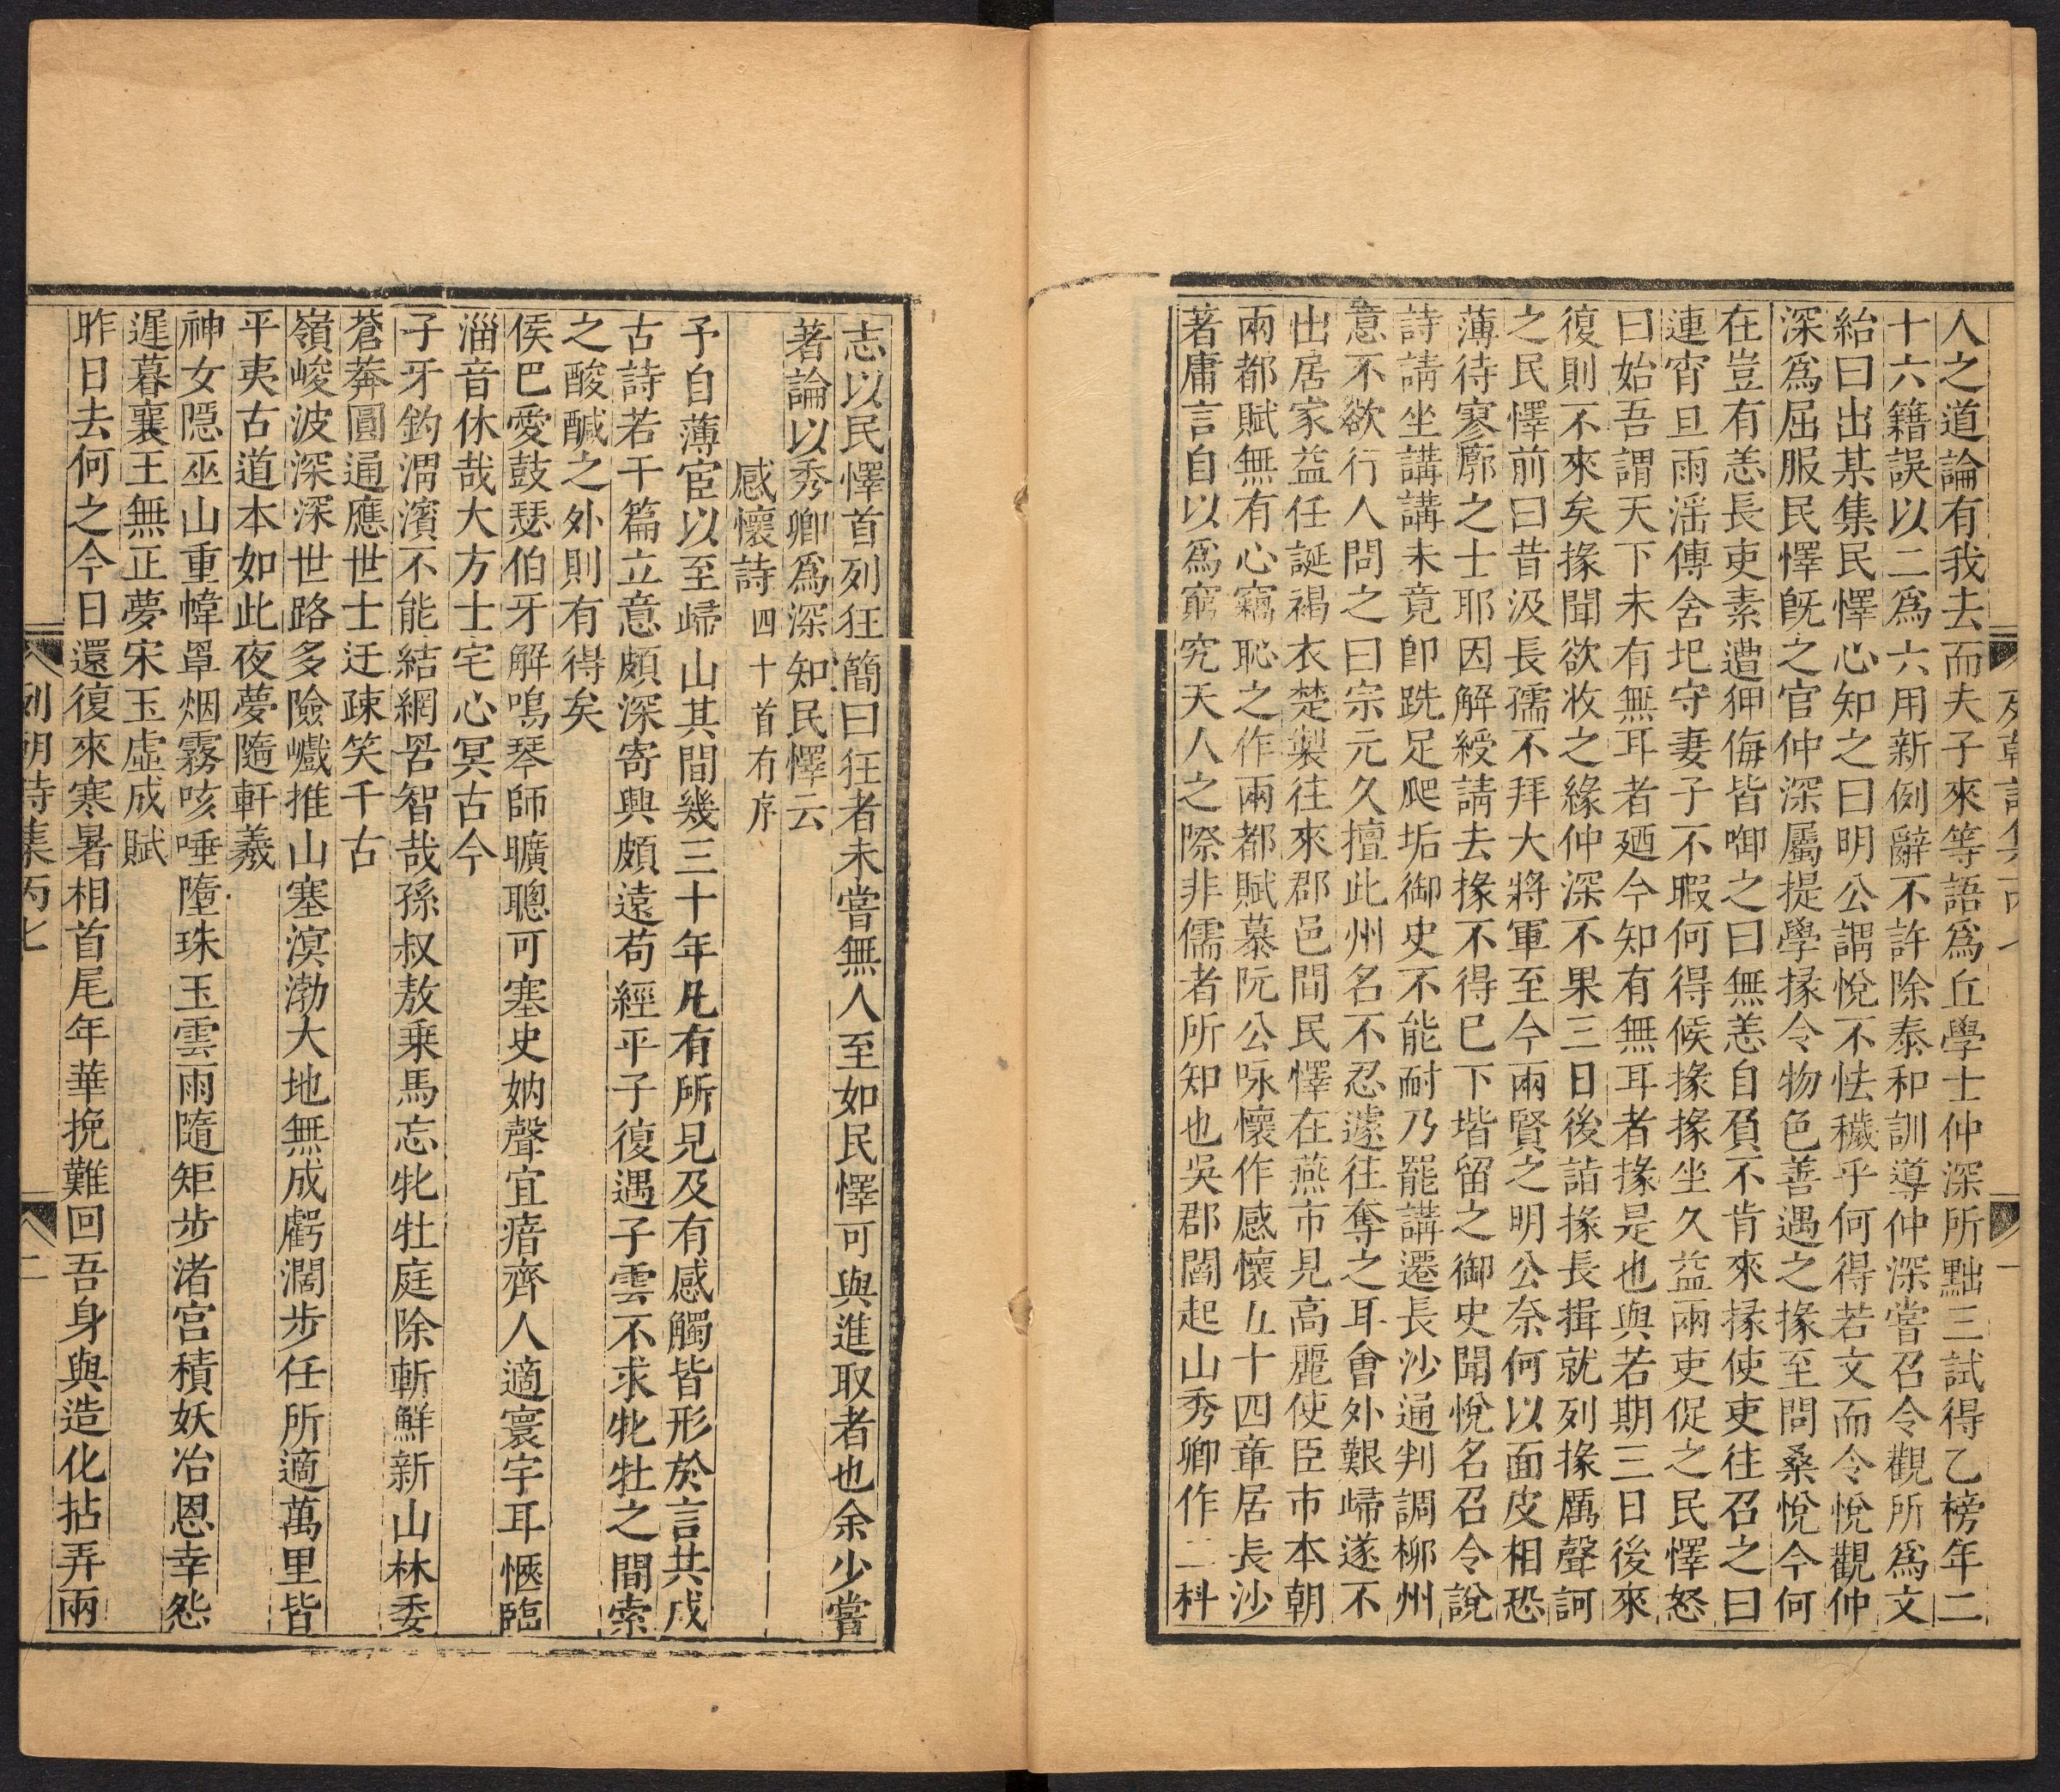 人之道論有我去而夫子來等語爲丘學士仲深所黜三試得乙榜年二
十六籍誤以二爲六用新例辭不許除泰和訓導仲深嘗召令觀所爲文
紿曰出某集民懌心知之曰明公謂悅不怯穢乎何得若文而令悅觀仲
深爲屈服民懌旣之官仲深屬提學掾令物色善遇之掾至問桑悅今何
在豈有恙長吏素遭狎侮皆啣之曰無恙自負不肯來掾使吏往召之曰
連宵旦雨滛傳舍圯守妻子不暇何得候掾掾坐久益兩吏促之民懌怒
曰始吾謂天下未有無耳者廼今知有無耳者掾是也與若期三日後來
復則不來矣掾聞欲收之緣仲深不果三日後詣掾長揖就列掾厲聲訶
之民懌前曰昔汲長孺不拜大將軍至今兩賢之明公奈何以面皮相恐
薄待寥廓之士耶因解綬請去掾不得已下堦留之御史聞悅名召令說
詩請坐講講未竟卽跣足爬垢御史不能耐乃罷講遷長沙通判調柳州
意不欲行人問之曰宗元久擅此州名不忍遽往奪之耳會外艱歸遂不
出居家益任誕褐衣楚製往來郡邑間民懌在燕市見高麗使臣市本朝
兩都賦無有心竊恥之作兩都賦慕阮公咏懷作感懷五十四章居長沙
著庸言自以爲窮究天人之際非儒者所知也吳郡閻起山秀卿作二科
志以民懌首列狂簡曰狂者未嘗無人至如民懌可與進取者也余少嘗
著論以秀卿爲深知民懌云
感懷詩四十首有序
予自薄宦以至歸山其間幾三十年凡有所見及有感觸皆形於言共成
古詩若干篇立意頗深寄興頗遠苟經平子復遇子雲不求牝牡之間索
之酸醎之外則有得矣
侯巴愛鼓瑟伯牙解鳴琴師曠聰可塞史妠聲宜瘖齊人適寰宇耳愜臨
淄音休哉大方士宅心冥古今
子牙釣渭濱不能結網罟智哉孫叔敖乗馬忘牝牡庭除斬鮮新山林委
蒼莽圓通應世士迂疎笑千古
嶺峻波深深世路多險巇推山塞溟渤大地無成虧濶步任所適萬里皆
平夷古道本如此夜夢隨軒羲
神女隱巫山重幃罩烟霧咳唾墮珠玉雲雨隨矩步渚宮積妖冶恩幸怨
遲暮襄王無正夢宋玉虛成賦
昨日去何之今日還復來寒暑相首尾年華挽難回吾身與造化拈弄兩
列朝詩集丙七
二